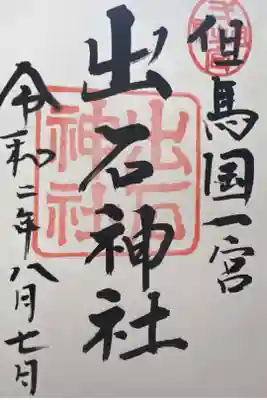 但馬国一宮
出石神社
出石神社
令和二年八月七日